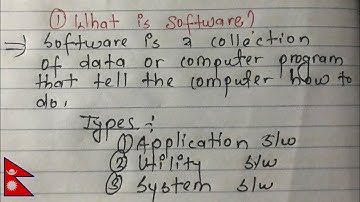 ① What is software?
⇒ Software is a collection
of data or computer program
that tell the computer how to
do.
Types :-
① Application S/w
② Utility S/w
③ System S/w